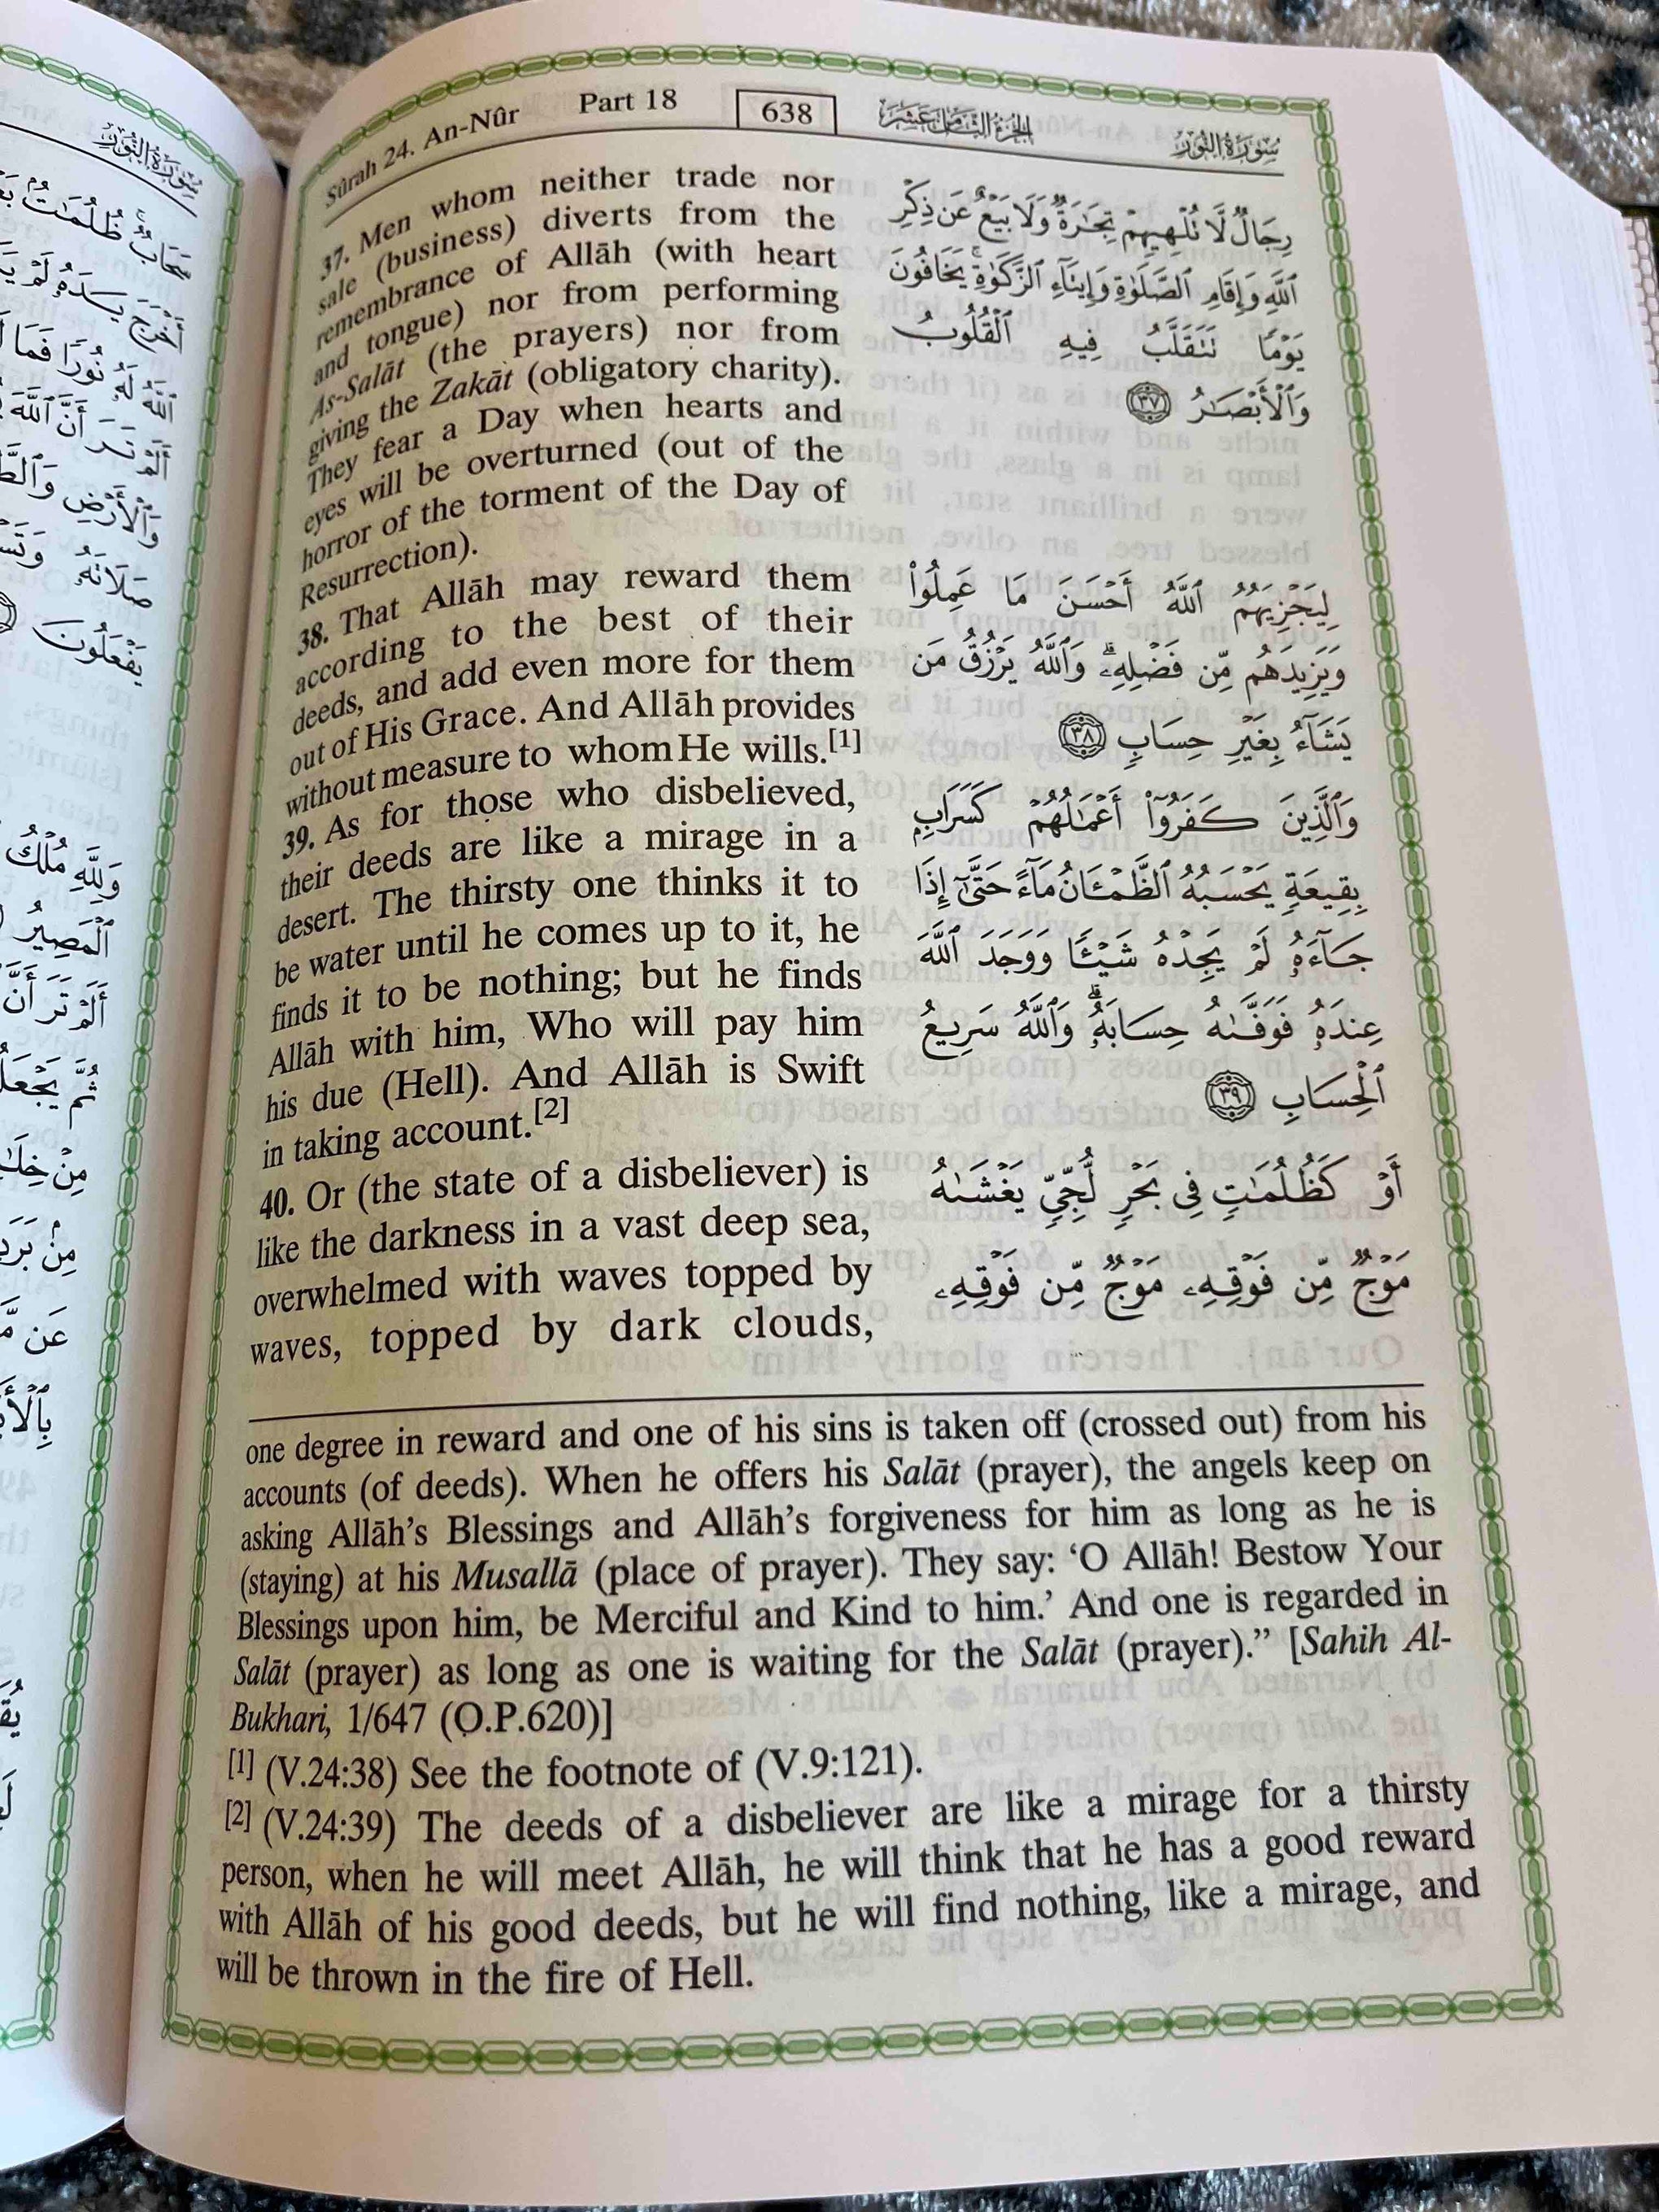 Sûrah 24. An-Nûr Part 18 638 الجزء الثامن عشر سورة النور
37. Men whom neither trade nor
sale (business) diverts from the
remembrance of Allāh (with heart
and tongue) nor from performing
As-Salāt (the prayers) nor from
giving the Zakāt (obligatory charity).
They fear a Day when hearts and
eyes will be overturned (out of the
horror of the torment of the Day of
Resurrection).
38. That Allāh may reward them
according to the best of their
deeds, and add even more for them
out of His Grace. And Allāh provides
without measure to whom He wills.[1]
39. As for those who disbelieved,
their deeds are like a mirage in a
desert. The thirsty one thinks it to
be water until he comes up to it, he
finds it to be nothing; but he finds
Allāh with him, Who will pay him
his due (Hell). And Allāh is Swift
in taking account.[2]
40. Or (the state of a disbeliever) is
like the darkness in a vast deep sea,
overwhelmed with waves topped by
waves, topped by dark clouds,
رِجَالٌ لَّا تُلْهِيهِمْ تِجَٰرَةٌ وَلَا بَيْعٌ عَن ذِكْرِ
ٱللَّهِ وَإِقَامِ ٱلصَّلَوٰةِ وَإِيتَآءِ ٱلزَّكَوٰةِ ۙ يَخَافُونَ
يَوْمًا تَتَقَلَّبُ فِيهِ ٱلْقُلُوبُ
وَٱلْأَبْصَٰرُ ٣٧
لِيَجْزِيَهُمُ ٱللَّهُ أَحْسَنَ مَا عَمِلُوا۟
وَيَزِيدَهُم مِّن فَضْلِهِۦ ۗ وَٱللَّهُ يَرْزُقُ مَن
يَشَآءُ بِغَيْرِ حِسَابٍ ٣٨
وَٱلَّذِينَ كَفَرُوٓا۟ أَعْمَٰلُهُمْ كَسَرَابٍۭ
بِقِيعَةٍ يَحْسَبُهُ ٱلظَّمْـَٔانُ مَآءً حَتَّىٰٓ إِذَا
جَآءَهُۥ لَمْ يَجِدْهُ شَيْـًٔا وَوَجَدَ ٱللَّهَ
عِندَهُۥ فَوَفَّىٰهُ حِسَابَهُۥ ۗ وَٱللَّهُ سَرِيعُ
ٱلْحِسَابِ ٣٩
أَوْ كَظُلُمَٰتٍ فِى بَحْرٍ لُّجِّىٍّ يَغْشَىٰهُ
مَوْجٌ مِّن فَوْقِهِۦ مَوْجٌ مِّن فَوْقِهِۦ
one degree in reward and one of his sins is taken off (crossed out) from his
accounts (of deeds). When he offers his Salāt (prayer), the angels keep on
asking Allāh’s Blessings and Allāh’s forgiveness for him as long as he is
(staying) at his Musallā (place of prayer). They say: ‘O Allāh! Bestow Your
Blessings upon him, be Merciful and Kind to him.’ And one is regarded in
Salāt (prayer) as long as one is waiting for the Salāt (prayer).” [Sahih Al-
Bukhari, 1/647 (O.P.620)]
[1] (V.24:38) See the footnote of (V.9:121).
[2] (V.24:39) The deeds of a disbeliever are like a mirage for a thirsty
person, when he will meet Allāh, he will think that he has a good reward
with Allāh of his good deeds, but he will find nothing, like a mirage, and
will be thrown in the fire of Hell.